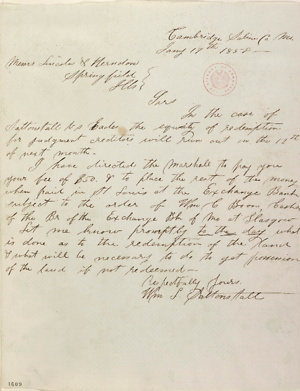 Cambridge Saline Co Mo
Jany 17th 1858
Messrs Lincoln & Herndon
Springfield
Ills
Sirs
In the case of
Saltonstall vs Eades the equity of redemption
for judgment creditors will run out on the 13th
of next month.
I have directed the Marshall to pay you
your fee of $50. & to place the rest of the money
when paid in St Louis at the Exchange Bank
subject to the order of Wm C Boon, Cashr
of the Br of the Exchange Bk of Mo at Glasgow
Let me know promptly to the day what
is done as to the redemption of the Land
& what will be necessary to do to get possession
of the land if not redeemed—
Respectfully, Yours.
Wm S Saltonstall
1609